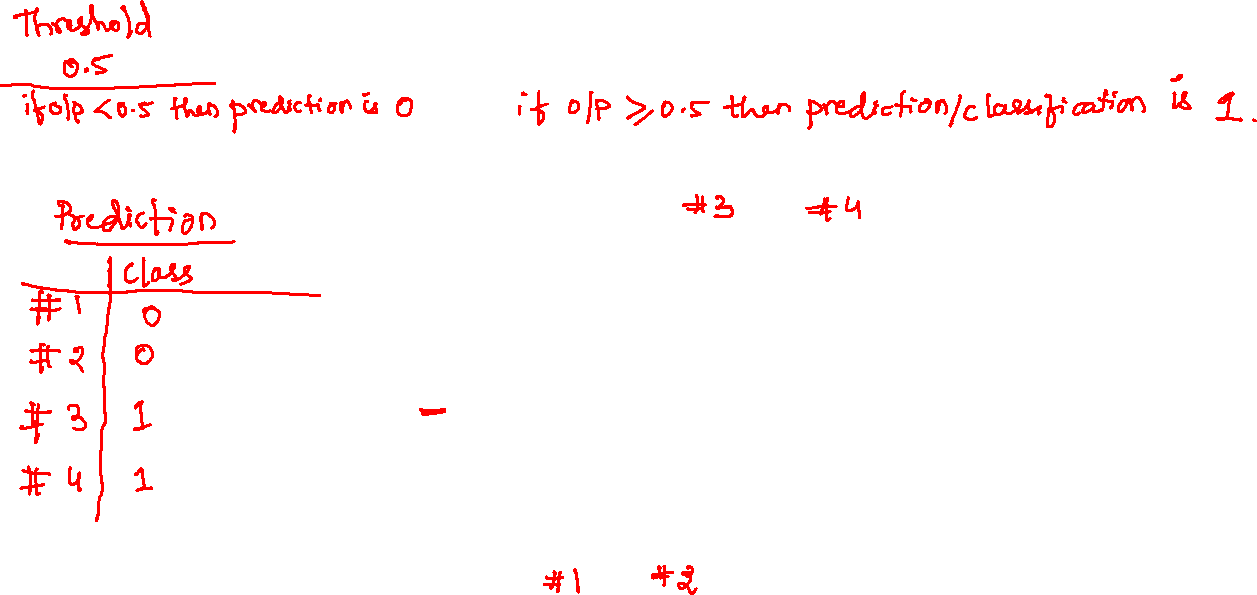 Threshold
0.5
if o/p < 0.5 then prediction is 0
if o/p ⩾ 0.5 then prediction/classification is 1.
#3 #4
Prediction
class
#1 0
#2 0
#3 1
-
#4 1
#1 #2